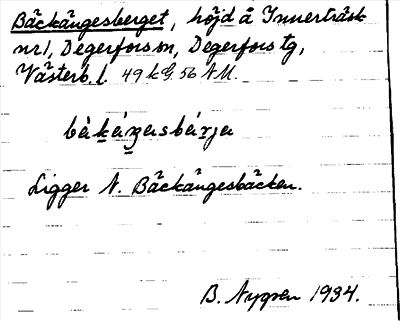 Bäckängesberget, höjd å Innerträsk
nr 1, Degerfors sn, Degerfors tg,
Västerb. l. 49 k G. 56 NM.
Ligger N. Bäckängesbäcken.
B. Nygren 1934.